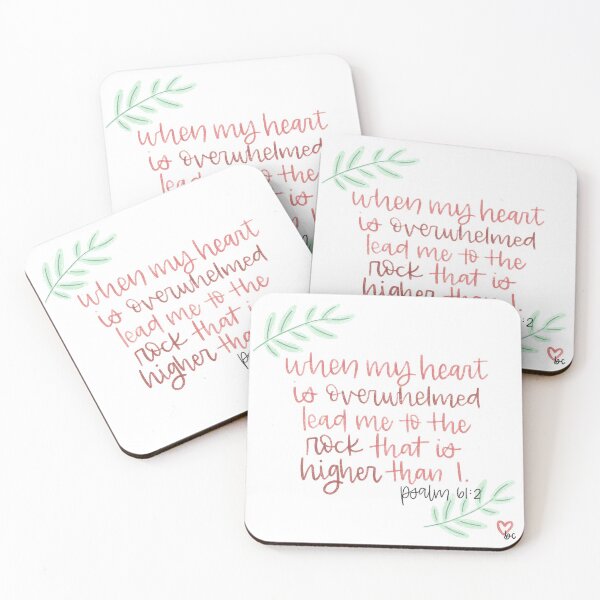 when my heart
is overwhelmed
lead me to the
is
when my heart
is overwhelmed
lead me to the
rock that is
higher than I.
:2
bc
when my heart
is overwhelmed
lead me to the
rock that
higher
when my heart
is overwhelmed
lead me to the
rock that is
higher than I.
psalm 61:2
bc